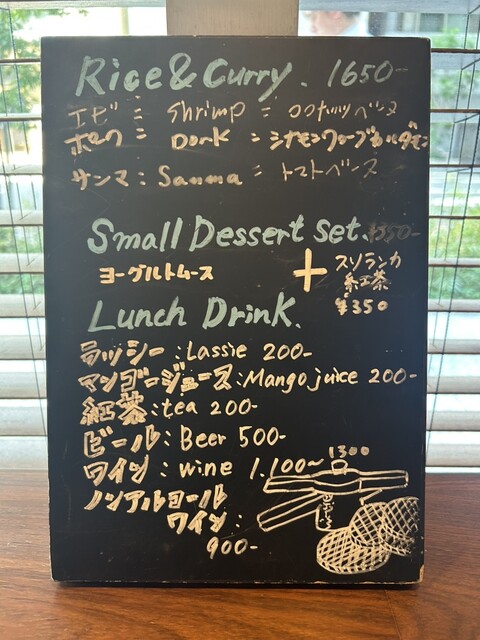 Rice & Curry. 1650-
エビ = Shrimp = ココナッツベース
ポーク = Pork = シナモンクローブカルダモン
サンマ : Sanma = トマトベース
Small Dessert Set. ¥350-
ヨーグルトムース + スリランカ
紅茶
¥350
Lunch Drink.
ラッシー : Lassie 200-
マンゴージュース : Mango juice 200-
紅茶 : tea 200-
ビール : Beer 500-
ワイン : wine 1.100~ 1300
ノンアルコール
ワイン :
900-